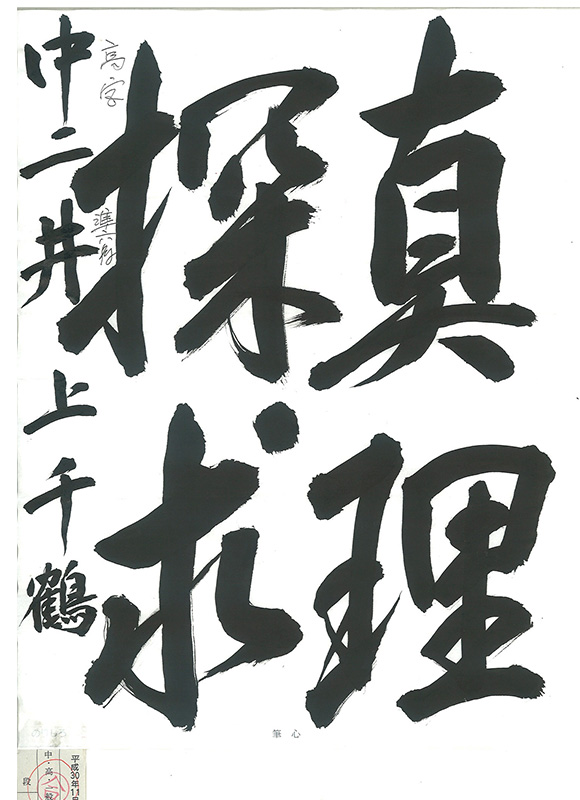 真理
探求
中二 井上千鶴
高字
準
筆心
平成30年11月
中・高・
段